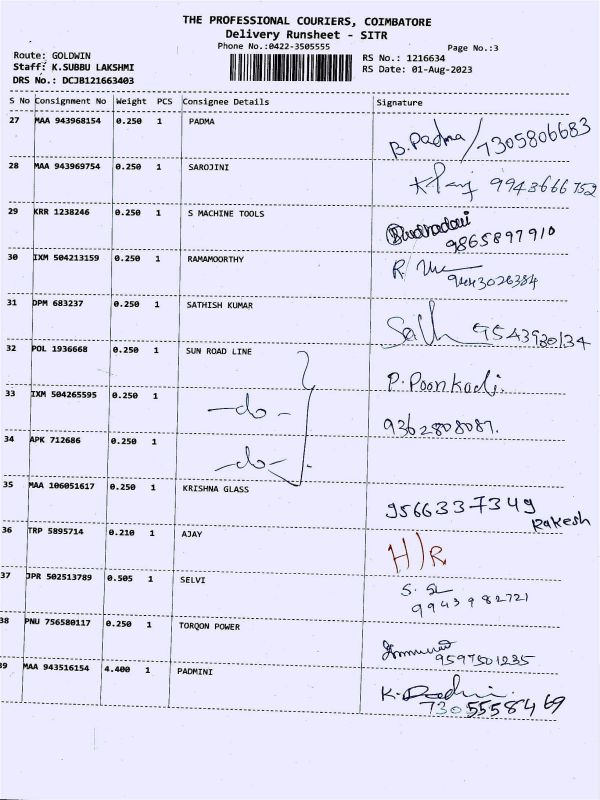 THE PROFESSIONAL COURIERS, COIMBATORE
Delivery Runsheet - SITR
Phone No.:0422-3505555
Page No.:3
Route: GOLDWIN
RS No.: 1216634
Staff: K.SUBBU LAKSHMI
RS Date: 01-Aug-2023
DRS No.: DCJB121663403
S No Consignment No Weight PCS Consignee Details Signature
27 MAA 943968154 0.250 1 PADMA B. Padma/7305806683
28 MAA 943969754 0.250 1 SAROJINI 9943666752
29 KRR 1238246 0.250 1 S MACHINE TOOLS
9865897910
30 IXM 504213159 0.250 1 RAMAMOORTHY
9443026384
31 DPM 683237 0.250 1 SATHISH KUMAR 9543930134
32 POL 1936668 0.250 1 SUN ROAD LINE P. Poonkodi.
33 IXM 504265595 0.250 1 -do- 9362808087.
34 APK 712686 0.250 1 -do-.
35 MAA 106051617 0.250 1 KRISHNA GLASS 9566337349
Rakesh
36 TRP 5895714 0.210 1 AJAY H/R
37 JPR 502513789 0.505 1 SELVI
9943982721
38 PNU 756580117 0.250 1 TORQON POWER
9597501235
39 MAA 943516154 4.400 1 PADMINI
7305558469